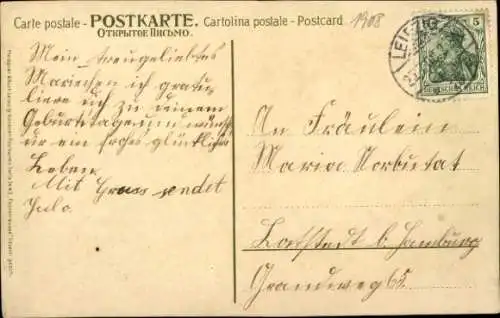 Carte postale – POSTKARTE. Cartolina postale – Postcard
ОТКРЫТОЕ ПИСЬМО.
1908
LEIPZIG
5
DEUTSCHES REICH
Mein treugeliebtes
Mariechen ich gratu-
liere dich zu deinem
Geburtstage u. wünsch
dir ein frohes glückliches
Leben.
Mit Gruss sendet
An Fräulein
Maria Norbutat
Lokstedt b. Hamburg
Grandweg 65